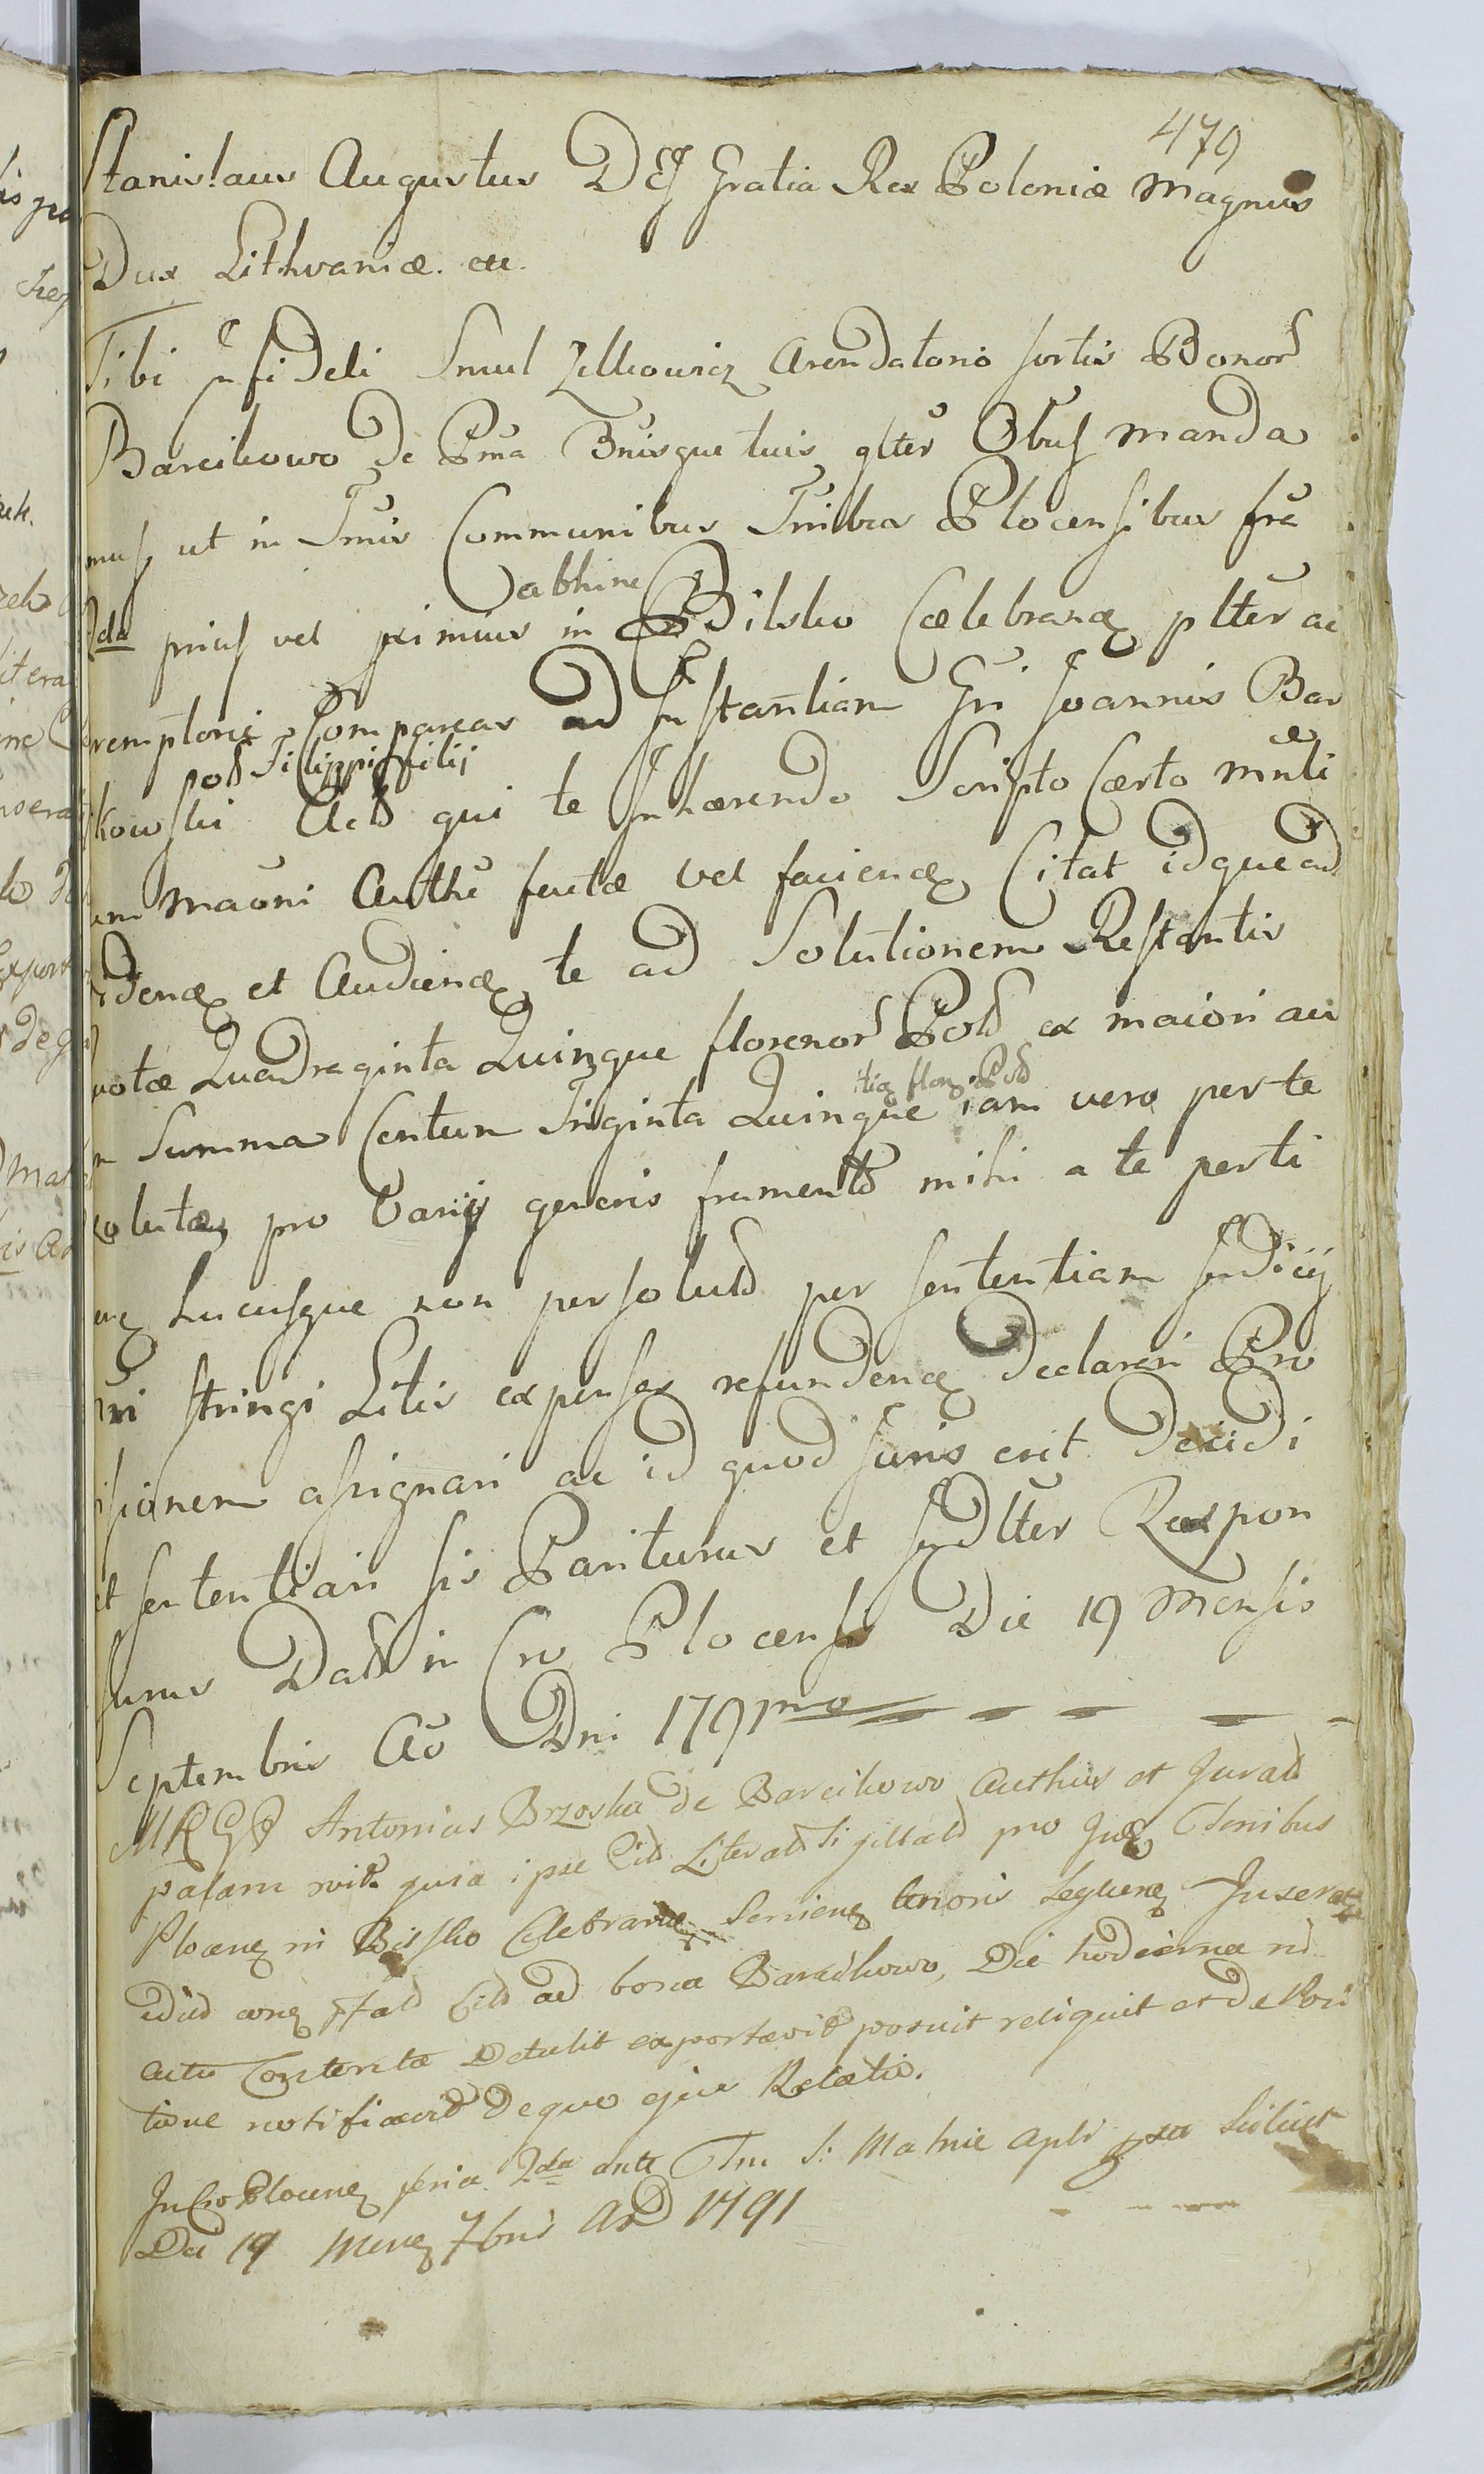 479
Stanislaus Augustus DEJ Gratia Rex Poloniæ Magnus
Dux Lithvaniæ. etc.
Tibi infideli Smul Zelkowicz Arendatorio sortis Bonor
Barcikowo de Pma Bnisque tuis glter Obus manda
mus ut in Tmis Communibus Tnibus Plocensibus fra
2da prius vel ximius in abhinc Bilsko Celebran plter ac
remptorie Compareas ad Instantiam Gni Joannis Bar
cikowski pod Filippi Filij Actd qui te Inhærendo Scripto Certo mnli
um maoni Authe factæ vel facien Citat idque ad
viden et Audien te ad Solutionem Restantis
quotæ Quadraginta Quinque florenor Pold ex maiori ac
Summa Centum Triginta Quinque flor Pold iam vero per te
soluta pro Varij generis frumentd mihi a te perti
huc usque non persolutd per sententiam Judicij
stringi Litis expensas refunden declarari Pro
visionem assignari ac id quod Juris erit decidi
et sententiari sis Pariturus et Jndlter Respon
surus Datt in Cro Plocensi Die 19 Mensis
Septembris Ao Dni 1791mo
MRGD Antonius Brzoska de Barcikowo Authus et Juratd
palam quia ipse Citd Literatd Sigillatd pro Jud Tenibus
Plocen in Bilsko Celebran Servien tenoris Sequen Inserat
ad bona Barcikowo, Die hodierna
actu Contenta Detulit exportavit posuit reliquit et de Posi
tione notificavit deque ejus Relatio.
In Cro Plocen feria 2da ante Tm S: Mathie Apli ipsa Scilicet
Die 19 Men 7bris AD 1791